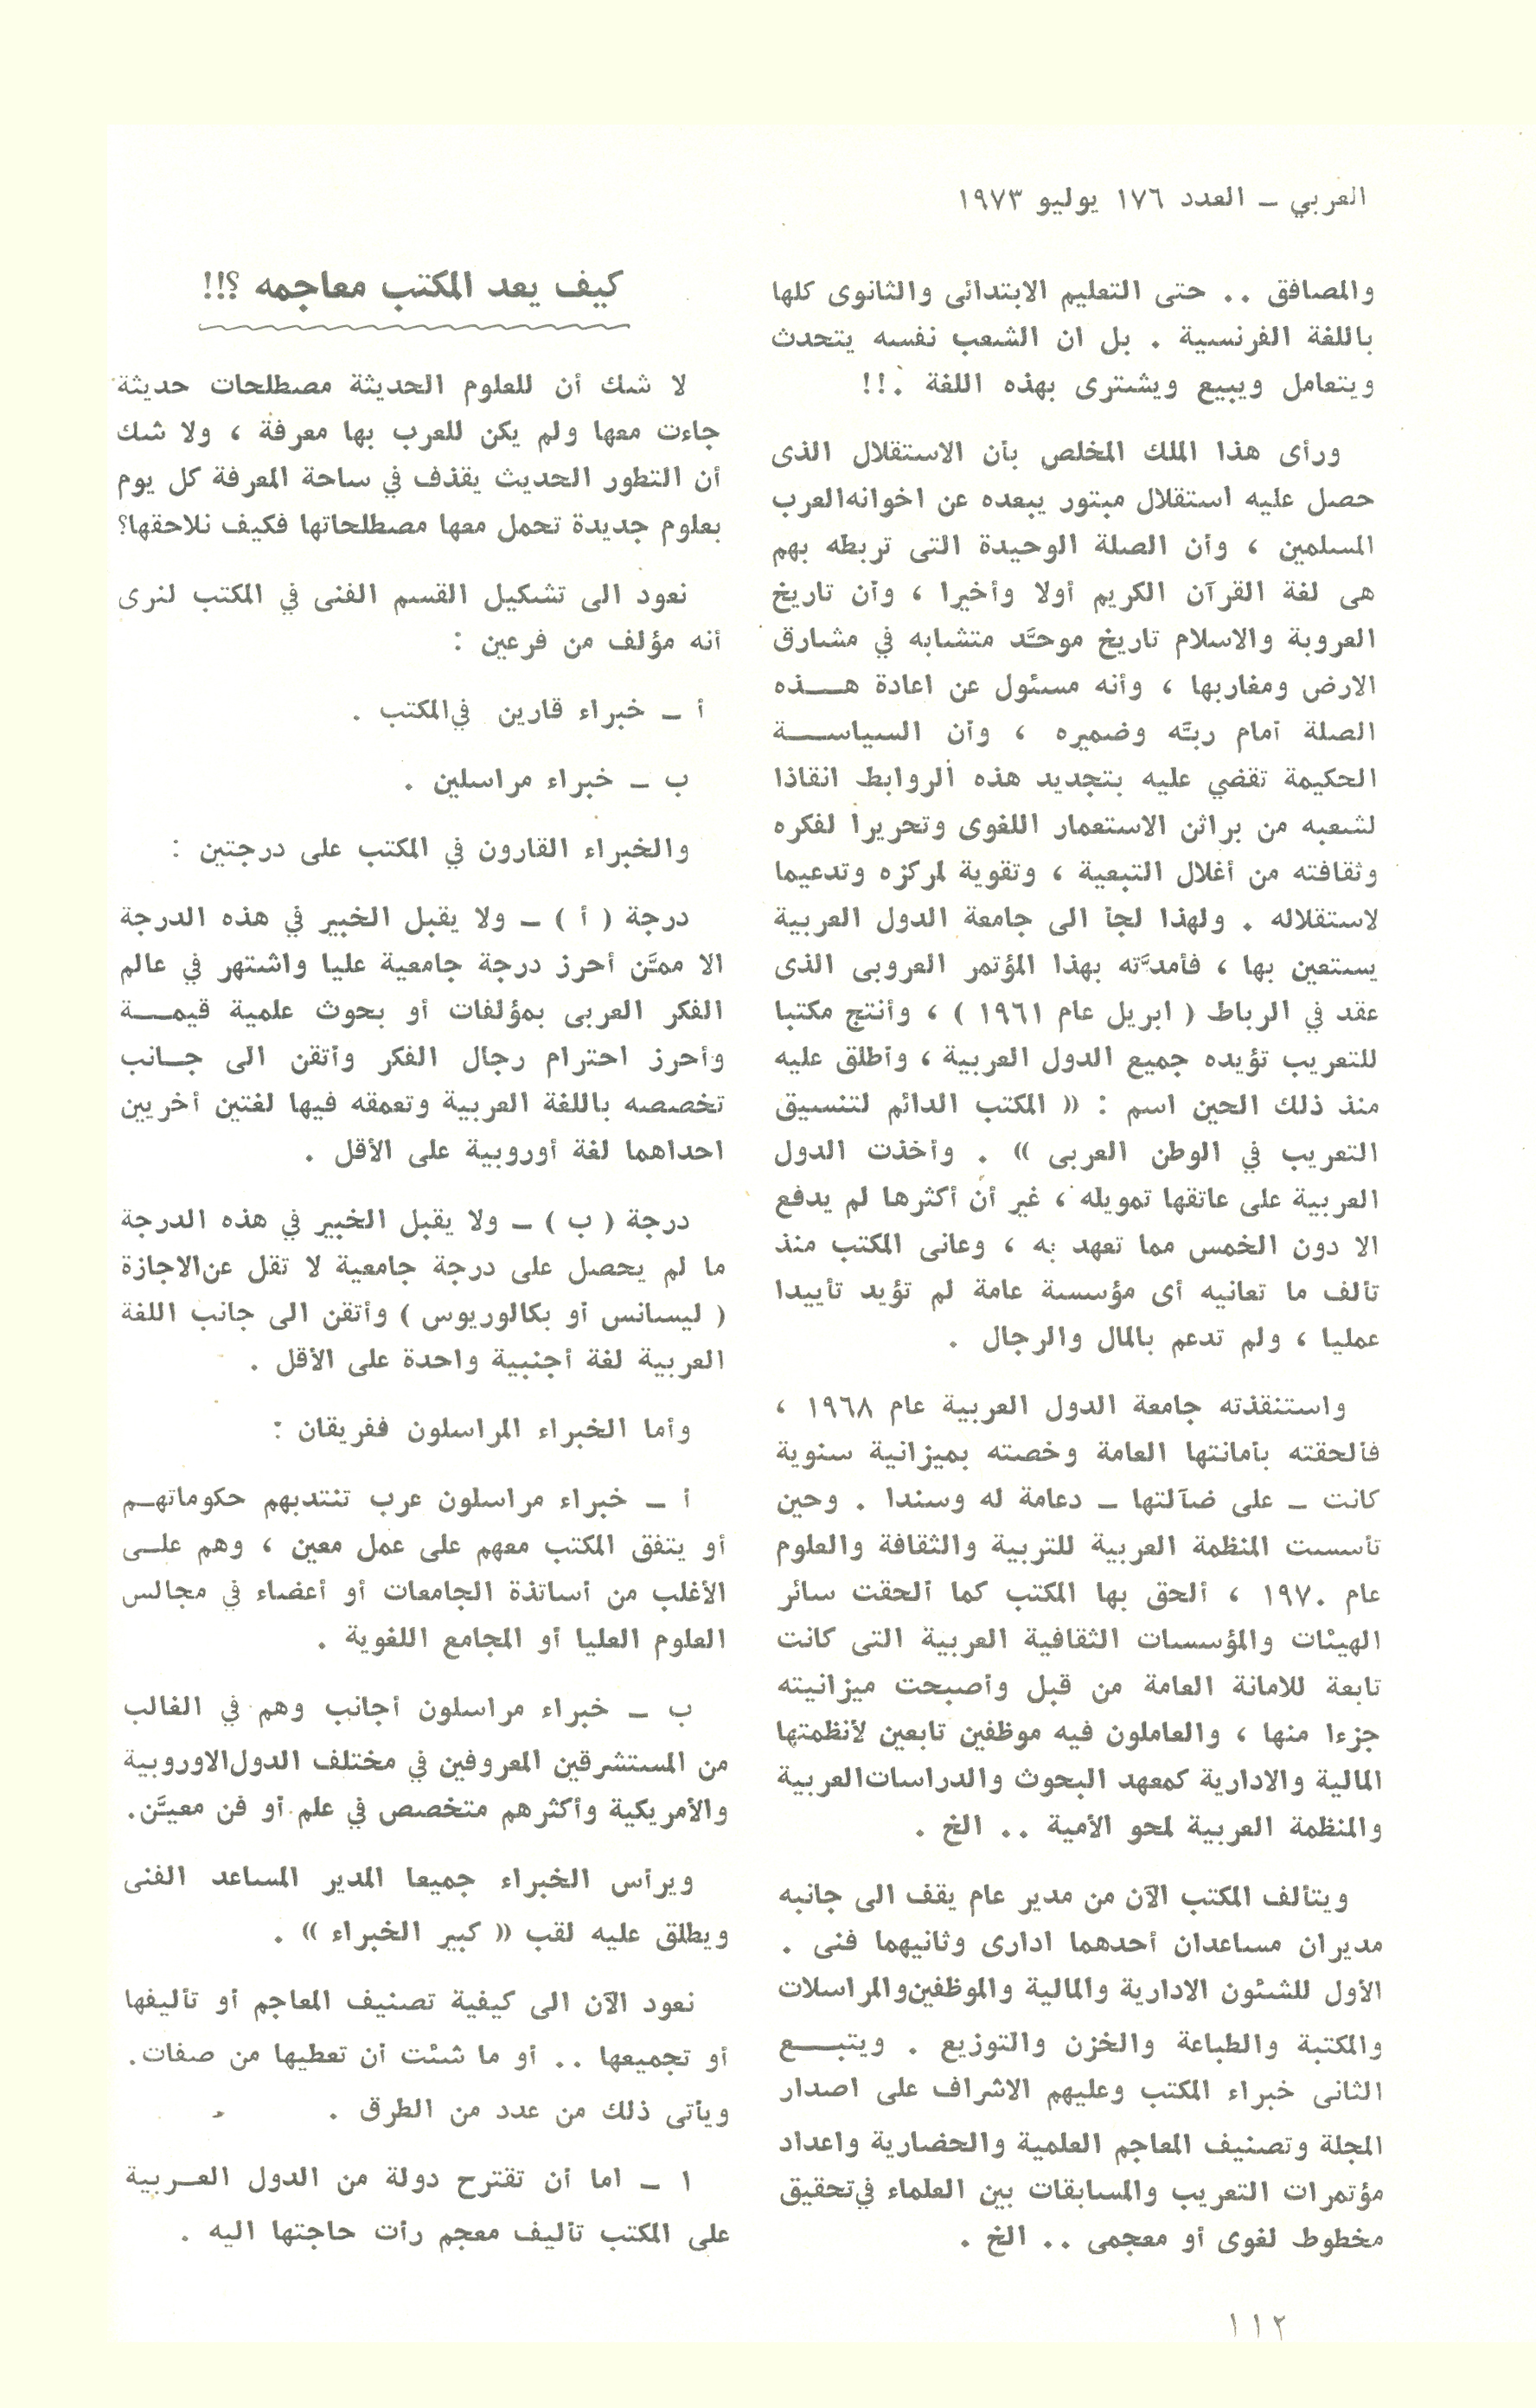 العربي – العدد ١٧٦ يوليو ١٩٧٣
والمصافق .. حتى التعليم الابتدائى والثانوى كلها
باللغة الفرنسية . بل ان الشعب نفسه يتحدث
ويتعامل ويبيع ويشترى بهذه اللغة .!!
ورأى هذا الملك المخلص بأن الاستقلال الذى
حصل عليه استقلال مبتور يبعده عن اخوانه العرب
المسلمين ، وأن الصلة الوحيدة التى تربطه بهم
هى لغة القرآن الكريم أولا وأخيرا ، وأن تاريخ
العروبة والاسلام تاريخ موحَّد متشابه في مشارق
الارض ومغاربها ، وأنه مسئول عن اعادة هـذه
الصلة أمام ربَّه وضميره ، وأن السياسـة
الحكيمة تقضي عليه بتجديد هذه الروابط انقاذا
لشعبه من براثن الاستعمار اللغوى وتحريرا لفكره
وثقافته من أغلال التبعية ، وتقوية لمركزه وتدعيما
لاستقلاله . ولهذا لجأ الى جامعة الدول العربية
يستعين بها ، فأمدَّته بهذا المؤتمر العروبى الذى
عقد في الرباط ( ابريل عام ١٩٦١ ) ، وأنتج مكتبا
للتعريب تؤيده جميع الدول العربية ، وأطلق عليه
منذ ذلك الحين اسم : « المكتب الدائم لتنسيق
التعريب في الوطن العربى » . وأخذت الدول
العربية على عاتقها تمويله ، غير أن أكثرها لم يدفع
الا دون الخمس مما تعهد به ، وعانى المكتب منذ
تألف ما تعانيه أى مؤسسة عامة لم تؤيد تأييدا
عمليا ، ولم تدعم بالمال والرجال .
واستنقذته جامعة الدول العربية عام ١٩٦٨ ،
فألحقته بأمانتها العامة وخصته بميزانية سنوية
كانت – على ضآلتها – دعامة له وسندا . وحين
تأسست المنظمة العربية للتربية والثقافة والعلوم
عام ١٩٧٠ ، ألحق بها المكتب كما ألحقت سائر
الهيئات والمؤسسات الثقافية العربية التى كانت
تابعة للامانة العامة من قبل وأصبحت ميزانيته
جزءا منها ، والعاملون فيه موظفين تابعين لأنظمتها
المالية والادارية كمعهد البحوث والدراسات العربية
والمنظمة العربية لمحو الأمية .. الخ .
ويتألف المكتب الآن من مدير عام يقف الى جانبه
مديران مساعدان أحدهما ادارى وثانيهما فنى .
الأول للشئون الادارية والمالية والموظفين والمراسلات
والمكتبة والطباعة والخزن والتوزيع . ويتبـع
الثانى خبراء المكتب وعليهم الاشراف على اصدار
المجلة وتصنيف المعاجم العلمية والحضارية واعداد
مؤتمرات التعريب والمسابقات بين العلماء في تحقيق
مخطوط لغوى أو معجمى .. الخ .
كيف يعد المكتب معاجمه ؟!!
لا شك أن للعلوم الحديثة مصطلحات حديثة
جاءت معها ولم يكن للعرب بها معرفة ، ولا شك
أن التطور الحديث يقذف في ساحة المعرفة كل يوم
بعلوم جديدة تحمل معها مصطلحاتها فكيف نلاحقها؟
نعود الى تشكيل القسم الفنى في المكتب لنرى
أنه مؤلف من فرعين :
أ – خبراء قارين في المكتب .
ب – خبراء مراسلين .
والخبراء القارون في المكتب على درجتين :
درجة ( أ ) – ولا يقبل الخبير في هذه الدرجة
الا ممَّن أحرز درجة جامعية عليا واشتهر في عالم
الفكر العربى بمؤلفات أو بحوث علمية قيمـة
وأحرز احترام رجال الفكر وأتقن الى جـانب
تخصصه باللغة العربية وتعمقه فيها لغتين أخريين
احداهما لغة أوروبية على الأقل .
درجة ( ب ) – ولا يقبل الخبير في هذه الدرجة
ما لم يحصل على درجة جامعية لا تقل عن الاجازة
( ليسانس أو بكالوريوس ) وأتقن الى جانب اللغة
العربية لغة أجنبية واحدة على الأقل .
وأما الخبراء المراسلون ففريقان :
أ – خبراء مراسلون عرب تنتدبهم حكوماتهـم
أو يتفق المكتب معهم على عمل معين ، وهم علـى
الأغلب من أساتذة الجامعات أو أعضاء في مجالس
العلوم العليا أو المجامع اللغوية .
ب – خبراء مراسلون أجانب وهم في الغالب
من المستشرقين المعروفين في مختلف الدول الاوروبية
والأمريكية وأكثرهم متخصص في علم أو فن معيَّن.
ويرأس الخبراء جميعا المدير المساعد الفنى
ويطلق عليه لقب « كبير الخبراء » .
نعود الآن الى كيفية تصنيف المعاجم أو تأليفها
أو تجميعها .. أو ما شئت أن تعطيها من صفات.
ويأتى ذلك من عدد من الطرق .
١ – اما أن تقترح دولة من الدول العـربية
على المكتب تأليف معجم رأت حاجتها اليه .
١١٢